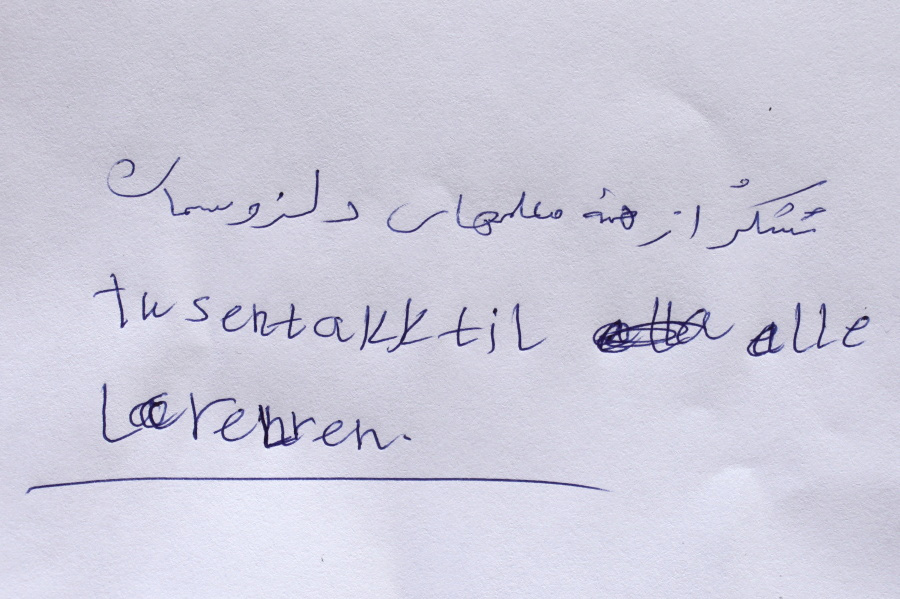 تشکر از همهٔ معلمهای دلسوز و
tusentakk til alle
Lærenren.